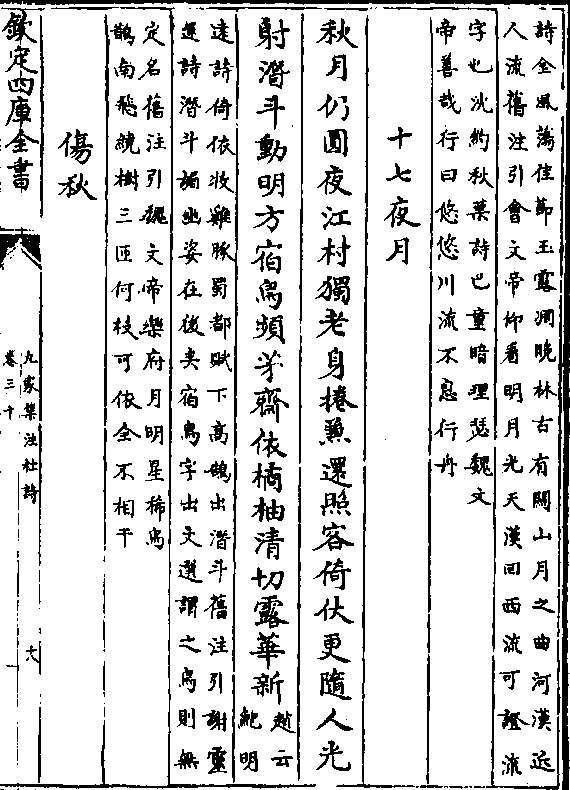 詩金風蕩佳節玉露凋晚林古有關山月之曲河漢近
人流舊注引曾文帝仰看明月光天漢回西流可證流
字也沈約秋葉詩巳童暗理瑟魏文
帝善哉行曰悠悠川流不息行舟
十七夜月
秋月仍圓夜江村獨老身捲簾還照客倚仗更隨人光
射潛斗動明方宿鳥頻茅齋依橘柚清切露華新
趙云
鮑明
遠詩倚依牧雞豚蜀都賦下高鵠出潛斗舊注引謝靈
運詩潛斗媚幽姿在後矣宿鳥字出文選謂之鳥則無
定名舊注引魏文帝樂府月明星稀烏
鵲南飛繞樹三匝何枝可依全不相干
傷秋
欽定四庫全書
九家集注杜詩
卷三十